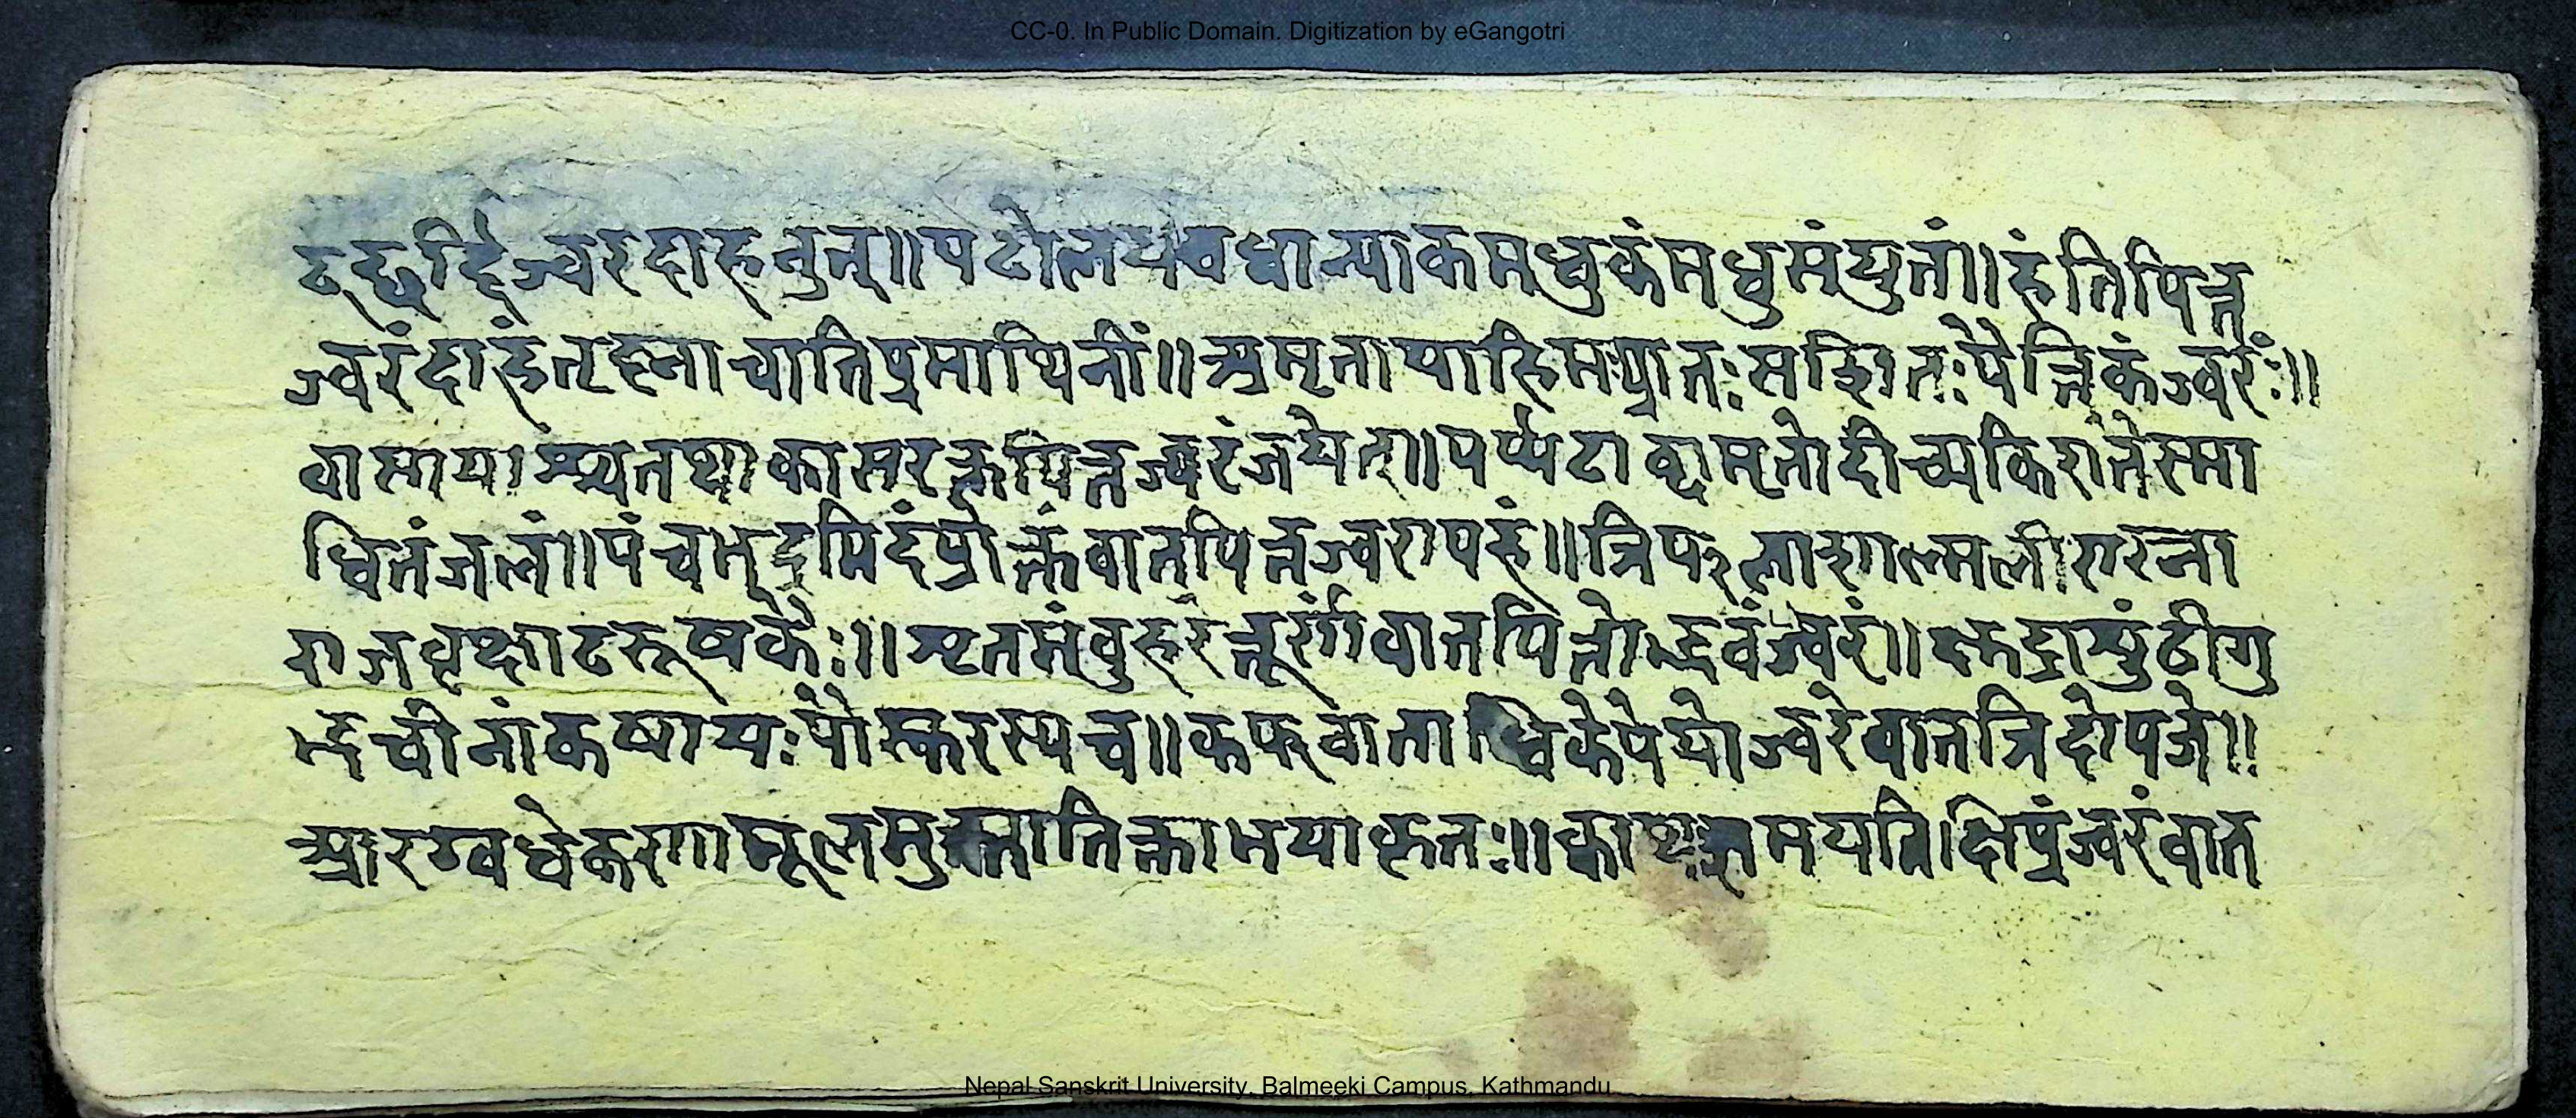 CC-0. In Public Domain. Digitization by eGangotri
ट्छर्द्दिज्वरदाहनुत्॥पटोलयवधान्याकमधुकंमधुसंयुतं॥हंतिपित्त
ज्वरंदाहंतृह्नाचातिप्रमाथिनीं॥अमृतायाहिमःप्रातःससितःपैत्तिकंज्वरंः॥
वासायाश्चतथाकासरक्तपित्तज्वरंजयेत्॥पर्प्पटाब्दामृतोदीच्यकिरातेस्सा
धितंजलं॥पंचभद्रमिदंप्रोक्तंवातपित्तज्वरापहं॥त्रिफलाशाल्मलीरास्ना
राजवृक्षाटरूषकैः॥शृतमंवुहरेत्तूर्णंवातपित्तोद्भवंज्वरं॥क्षुद्राशुंठीगु
डूचीनांकषायःपौस्करस्यच॥कफवाताधिकेपेयोज्वरेवातत्रिदोषजे॥
आरग्वधकणामूलमुस्तातिक्ताभयाकृतः॥क्वाथःशमयति।क्षिप्रंज्वरंवात
Nepal Sanskrit University, Balmeeki Campus, Kathmandu